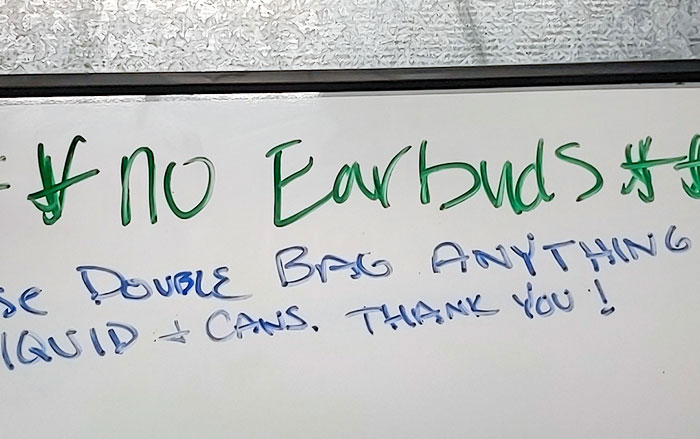 no Earbuds
se DOUBLE BAG ANYTHING
IQUID + CANS. THANK YOU!